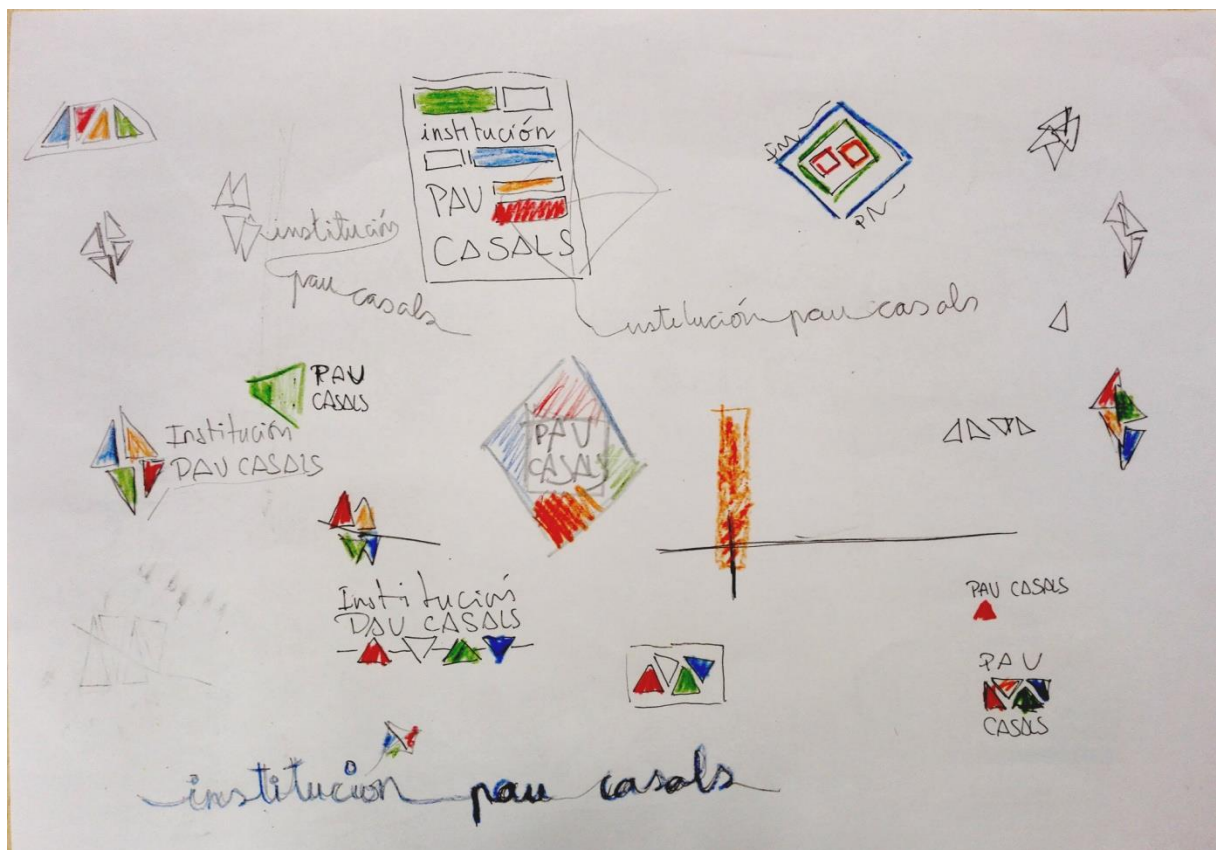 institución
PAU
CASALS
institución
pau casals
institución pau casals
PAU
CASALS
Institución
PAU CASALS
PAU
CASALS
Institución
PAU CASALS
PAU CASALS
PAU
CASALS
institución pau casals